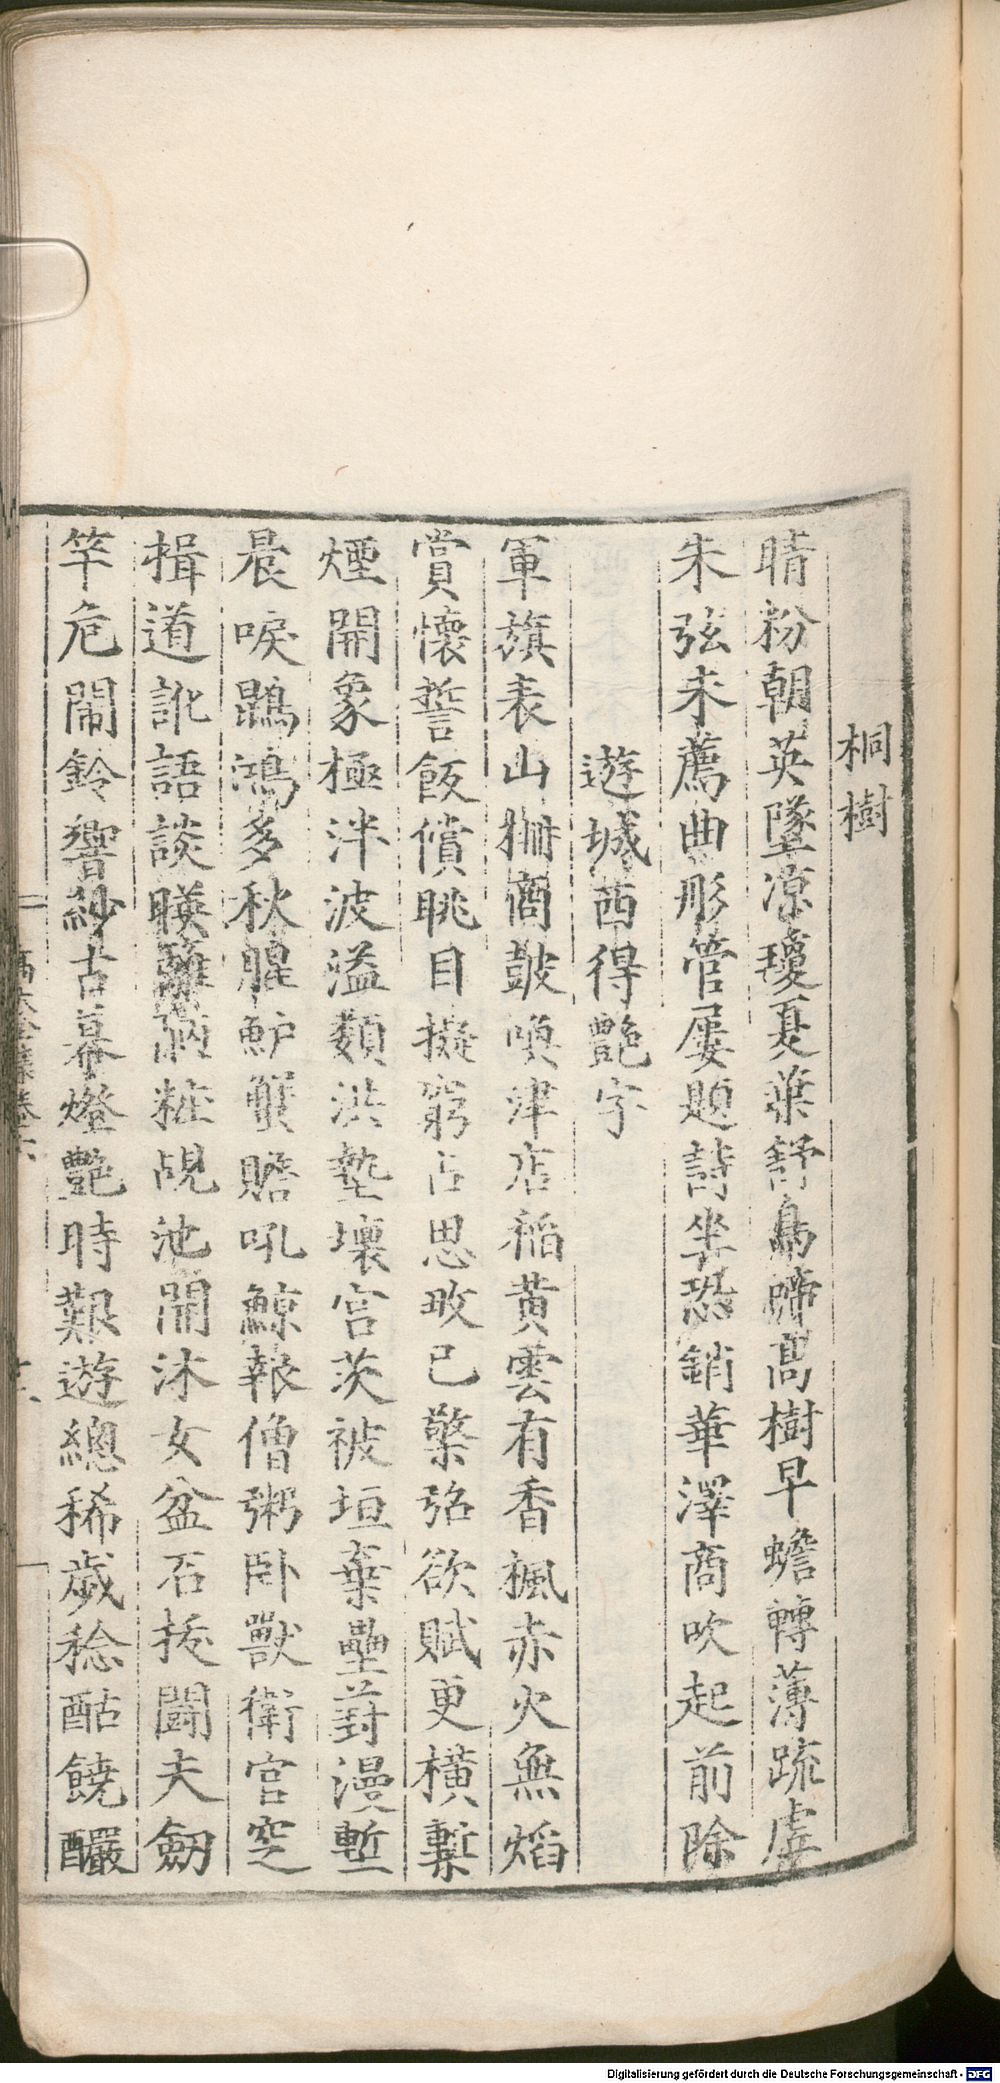 桐樹
晴粉朝英墜凉瓊夏葉舒鳥啼高樹早蟾轉薄疏虛
朱弦未薦曲彤管屢題詩坐恐銷華澤商吹起前除
遊城西得艷字
軍旗表山栅商鼓喚津店稻黄雲有香楓赤火無焰
賞懷誓飯償眺目擬窮占思敀已檠弨欲賦更橫槧
煙開象極泮波溢纇洪墊壞宫茨被垣棄壘葑漫塹
晨唳鵾鴻多秋腥魲蟹贍吼鯨報僧粥卧獸衛官窆
揖道訛語談暎籬粧覘池閙沐女盆石抝鬪夫劒
竿危鬧鈴響紗古幕燈艷時艱遊總稀歲稔酤饒釅